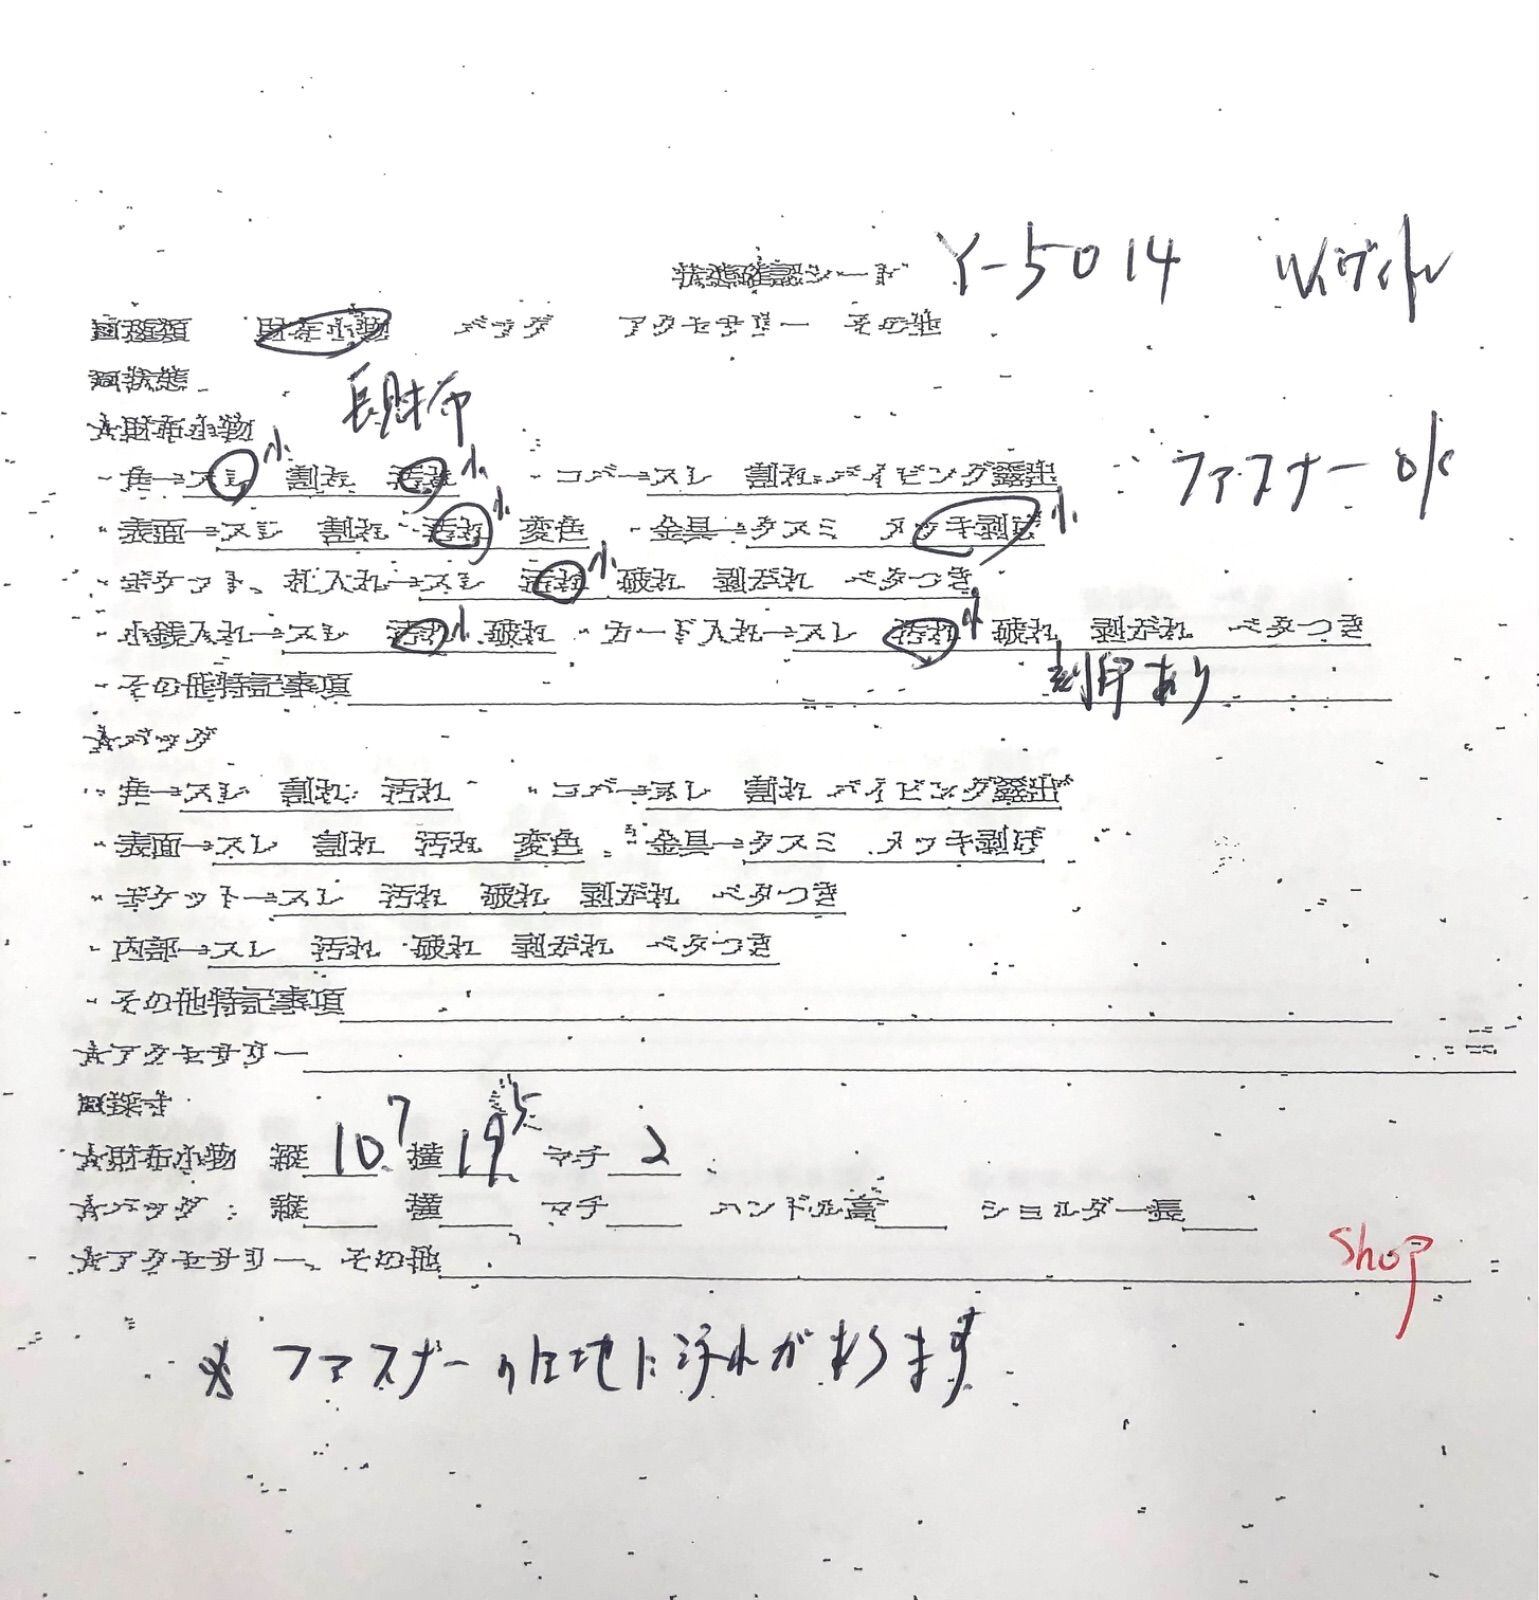 状態確認シート Y-5014 ルイヴィトン
■種類 財布小物 バッグ アクセサリー その他
■状態
長財布
★財布小物
・角→スレ小 割れ 汚れ小 ・コバ→スレ 割れ パイピング露出 ファスナー ok
・表面→スレ 割れ 汚れ小 変色 ・金具→クスミ メッキ剥げ小
・ポケット、札入れ→スレ 汚れ小 破れ 剥がれ ベタつき
・小銭入れ→スレ 汚れ小 破れ ・カード入れ→スレ 汚れ小 破れ 剥がれ ベタつき
・その他特記事項 刻印あり
★バッグ
・角→スレ 割れ 汚れ ・コバ→スレ 割れ パイピング露出
・表面→スレ 割れ 汚れ 変色 ・金具→クスミ メッキ剥げ
・ポケット→スレ 汚れ 破れ 剥がれ ベタつき
・内部→スレ 汚れ 破れ 剥がれ ベタつき
・その他特記事項
★アクセサリー
■採寸
★財布小物 縦 10.7 横 19.5 マチ 2
★バッグ 縦 横 マチ ハンドル高 ショルダー長
★アクセサリー、その他
shop
※ ファスナーの生地に汚れがあります